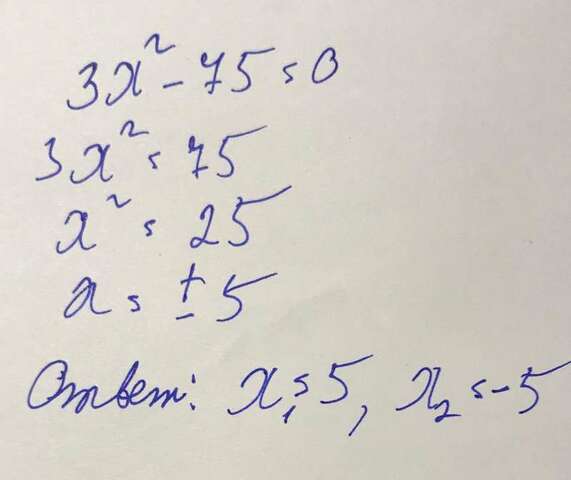 3x² - 75 = 0
3x² = 75
x² = 25
x = ± 5
Ответ: x₁ = 5, x₂ = -5